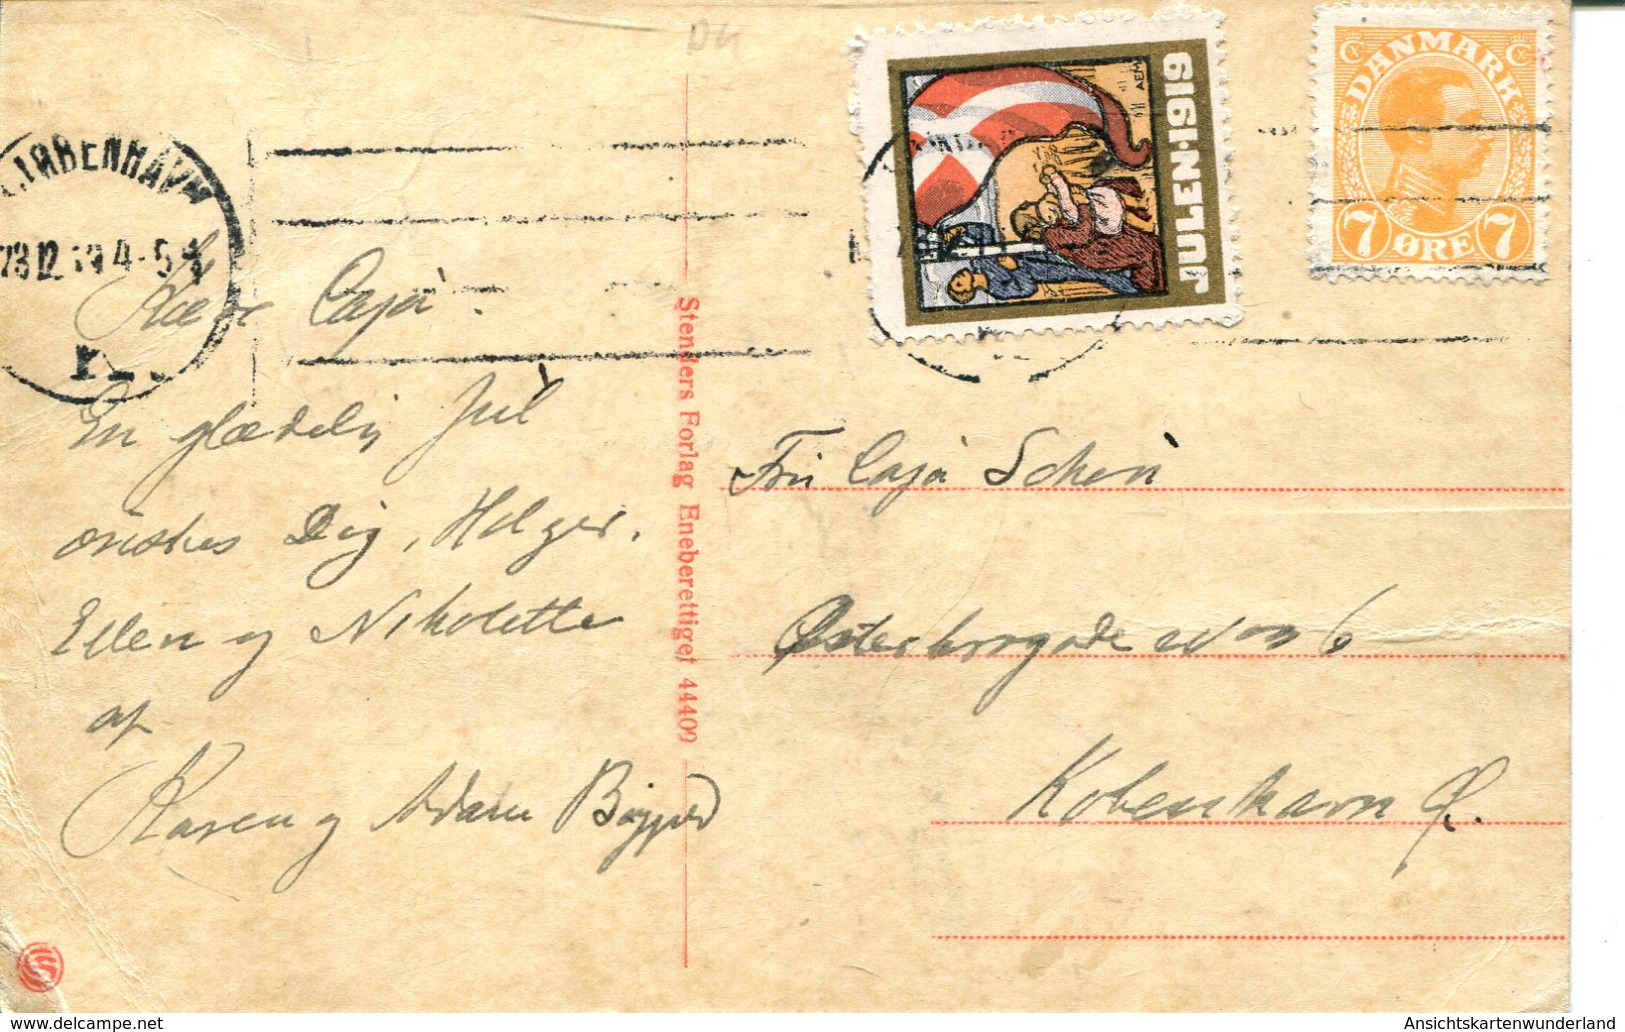 DK
KJØBENHAVN
23 12 19 4-5
JULEN·1919
AEM
DANMARK
7 ØRE 7
Kære Caja.
En glædelig Jul
ønskes Dig, Holger,
Ellen og Nikolette
af
Karen og Adam
Stenders Forlag Eneberettiget 44409
Fru Caja Schou
Østerbrogade 6
København Ø.
AnsichtskartenWunderland